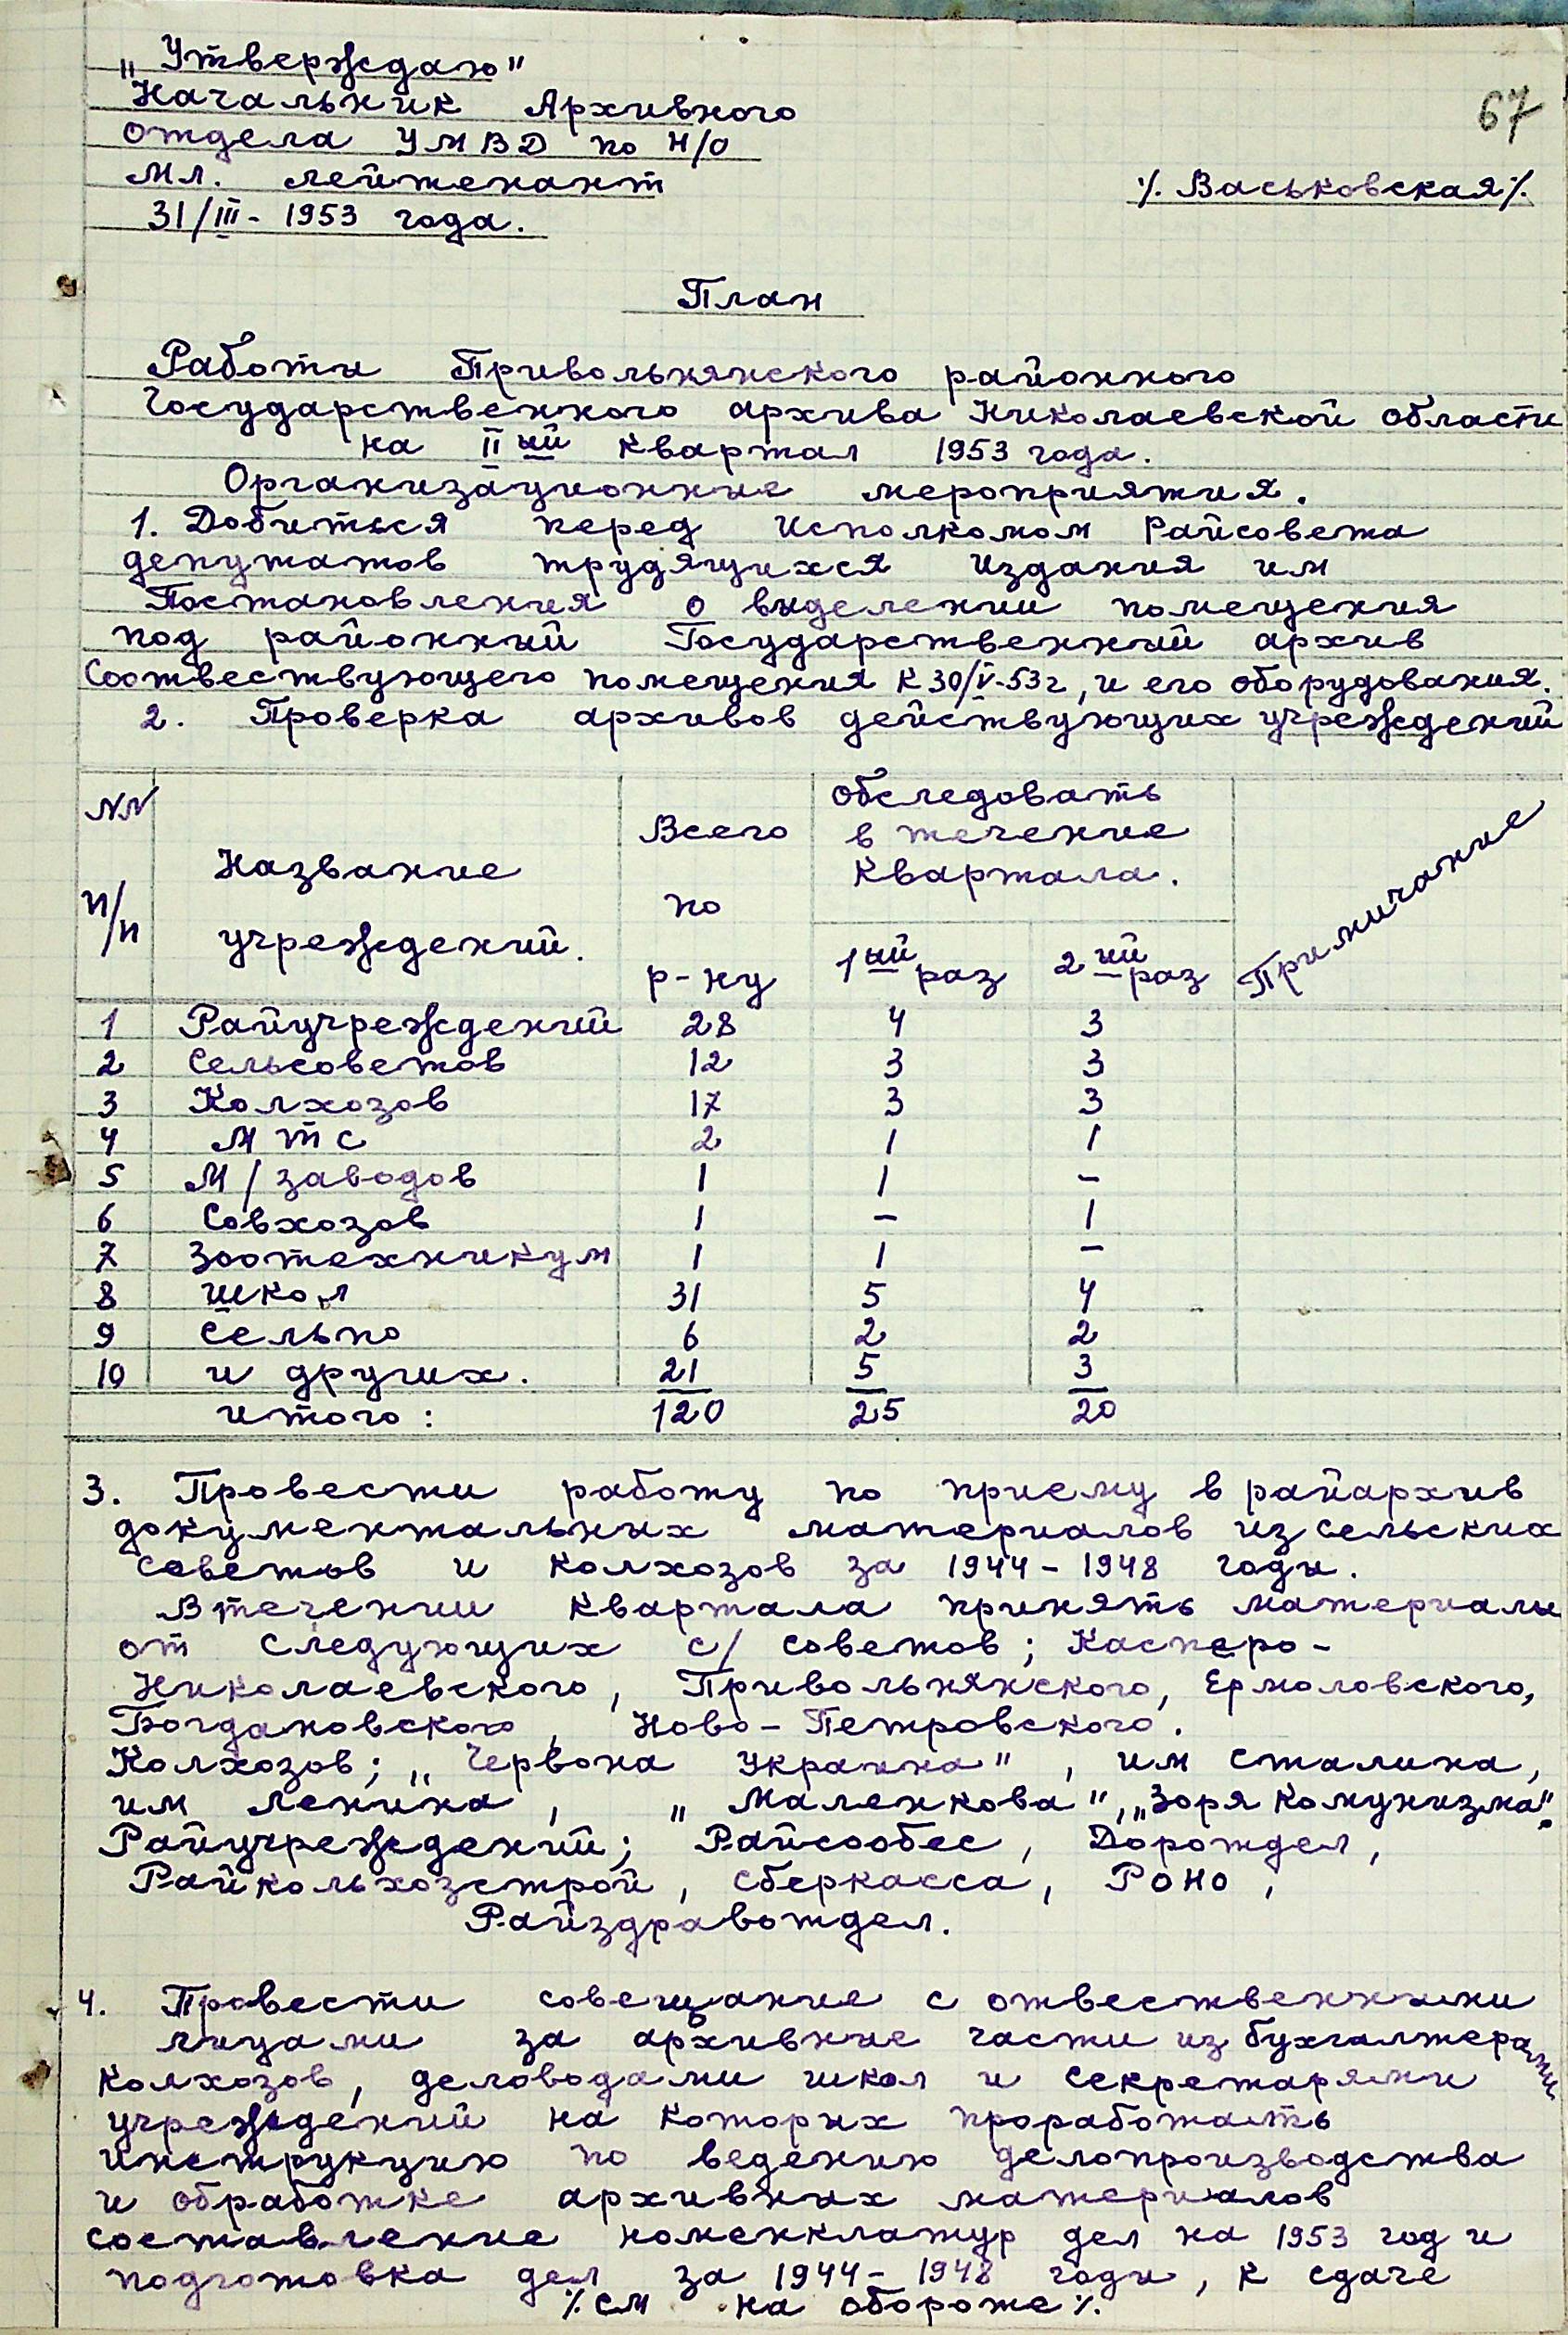 „Утверждаю"
67
Начальник Архивного
отдела УМВД по Н/О
Мл. лейтенант
/. Васьковская /.
31/III - 1953 года.
План
Работы Привольнянского районного
Государственного архива Николаевской области
на II ый квартал 1953 года.
Организационные мероприятия.
1. Добиться перед Исполкомом Райсовета
депутатов трудящихся издания им
Постановления о выделении помещения
под районный Государственный архив
Соотвествующего помещения к 30/V-53г, и его оборудования.
2. Проверка архивов действующих учреждений
NN п/п Название учреждений. Всего по р-ну Обследовать в течение Квартала. Примичание
1 ый раз 2 ий раз
1 Райучреждений 28 4 3
2 Сельсоветов 12 3 3
3 Колхозов 17 3 3
4 МТС 2 1 1
5 М/заводов 1 1 -
6 Совхозов 1 - 1
7 Зоотехникум 1 1 -
8 школ 31 5 4
9 Сельпо 6 2 2
10 и других. 21 5 3
итого: 120 25 20
3. Провести работу по приему в райархив
документальных материалов из сельских
советов и колхозов за 1944 - 1948 годы.
В течении квартала принять материалы
от следующих с/советов; Касперо-
Николаевского, Привольнянского, Ермоловского,
Богдановского, Ново-Петровского.
Колхозов; „Червона Украина", им Сталина,
им Ленина, „Маленкова", „Зоря Комунизма".
Райучреждений; Райсообес, Дорождел,
Райкольхозстрой, сберкасса, РОНО,
Райздравотдел.
4. Провести совещание с отвественными
лицами за архивные части из бухгалтерами
колхозов, деловодами школ и секретарями
учреждений на которых проработать
инструкцию по ведению делопроизводства
и обработке архивных материалов
составление номенклатур дел на 1953 год и
подготовка дел за 1944 - 1948 годы, к сдаче
/. см на обороте /.